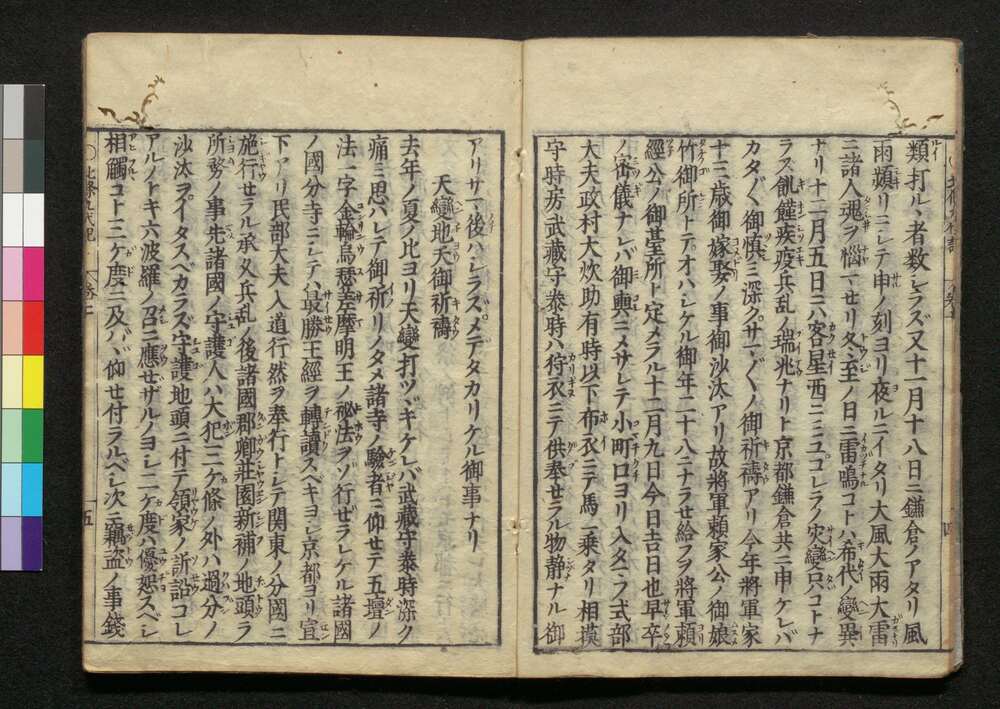 類打ルヽ者数シラズ又十一月十八日ニ鎌倉ノアタリ風
雨頻リニシテ申ノ刻ヨリ夜ルニイタリ大風大雨大雷
ニ諸人魂ヲ惱マセリ冬至ノ日ニ雷鳴コトハ希代ノ變異
ナリ十二月五日ニハ客星西ニミユコレラノ災變只コトナ
ラス飢饉疾疫兵乱ノ瑞兆ナリト京都鎌倉共ニ申ケレバ
カタ〴〵御慎ミ深クサマ〴〵ノ御祈禱アリ今年將軍家
十三歳御嫁娶ノ事御沙汰アリ故將軍頼家公ノ御娘
竹御所トテオハシケル御年二十八ニナラせ給フヲ將軍頼
經公ノ御䑓所ト定メラル十二月九日今日吉日也早卒
ノ密儀ナレバ御輿ニメサレテ小町口ヨリ入タマフ式部
大夫政村大炊助有時以下布衣ニテ馬ニ乗タリ相摸
守時房武蔵守泰時ハ狩衣ニテ供奉せラル物静ナル御
アリサマ後ハシラズメデタカリケル御事ナリ
天變地夭御祈禱
去年ノ夏ノ比ヨリ天變打ツヾキケレバ武藏守泰時深ク
痛ミ思ハレテ御祈リノタメ諸寺ノ驗者ニ仰せテ五壇ノ
法一字金輪烏瑟差摩明王ノ祕法ヲゾ行ぜラレケル諸國
ノ國分寺ニシテハ最勝王經ヲ轉讀スベキヨシ京都ヨリ宣
下アリ民部大夫入道行然ヲ奉行トシテ関東ノ分國ニ
施行せラル承久兵乱ノ後諸國郡郷莊園新補ノ地頭ラ
所務ノ事先諸國ノ守護人ハ大犯三ケ條ノ外ハ過分ノ
沙汰ヲイタスベカラズ守護地頭ニ付テ領家ノ訴訟コレ
アルノトキ六波羅ノ召ニ應せザルノヨシ一ケ度ハ優恕スベシ
相觸コト三ケ度ニ及バヽ仰せ付ラルベシ次ニ竊盗ノ事錢
五